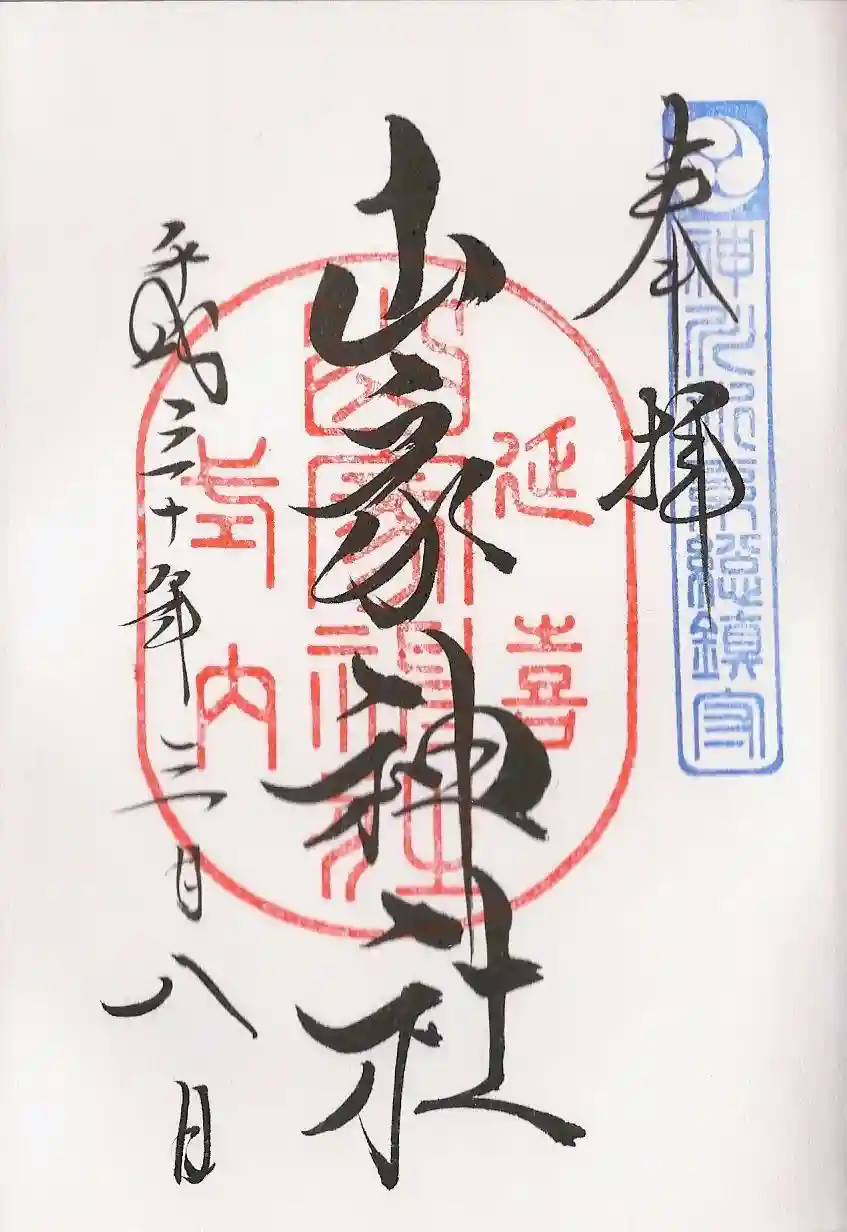 奉拝
神 總鎮守
山家神社
延喜
山家神社
式内
平成三十年三月八日